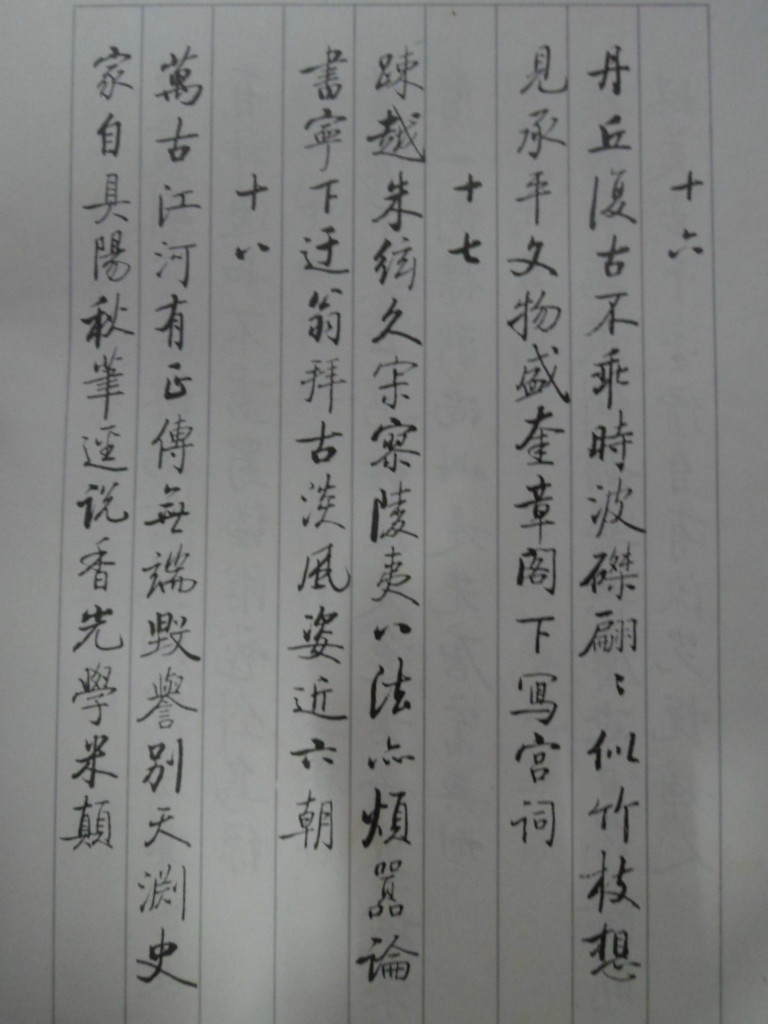 十六
丹丘復古不乖時波磔翩〻似竹枝想
見承平文物盛奎章閣下寫宮詞
十七
踈越朱絃久寂寥陵夷八法亦煩嚣論
書寧下迂翁拜古淡風姿近六朝
十八
萬古江河有正傳無端毀譽別天淵史
家自具陽秋筆逕説香光學米顛